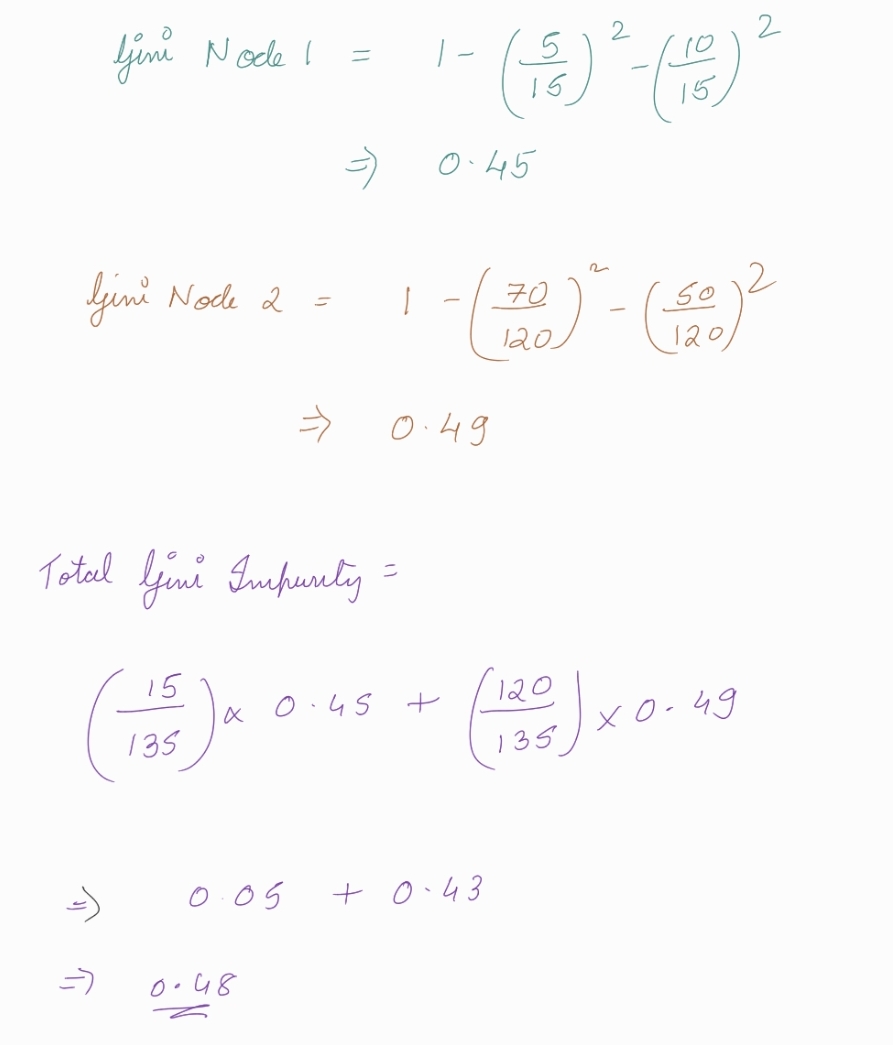 Gini Node 1 = 1 - (5/15)² - (10/15)²
⇒ 0.45
Gini Node 2 = 1 - (70/120)² - (50/120)²
⇒ 0.49
Total Gini Impurity =
(15/135) × 0.45 + (120/135) × 0.49
⇒ 0.05 + 0.43
⇒ 0.48